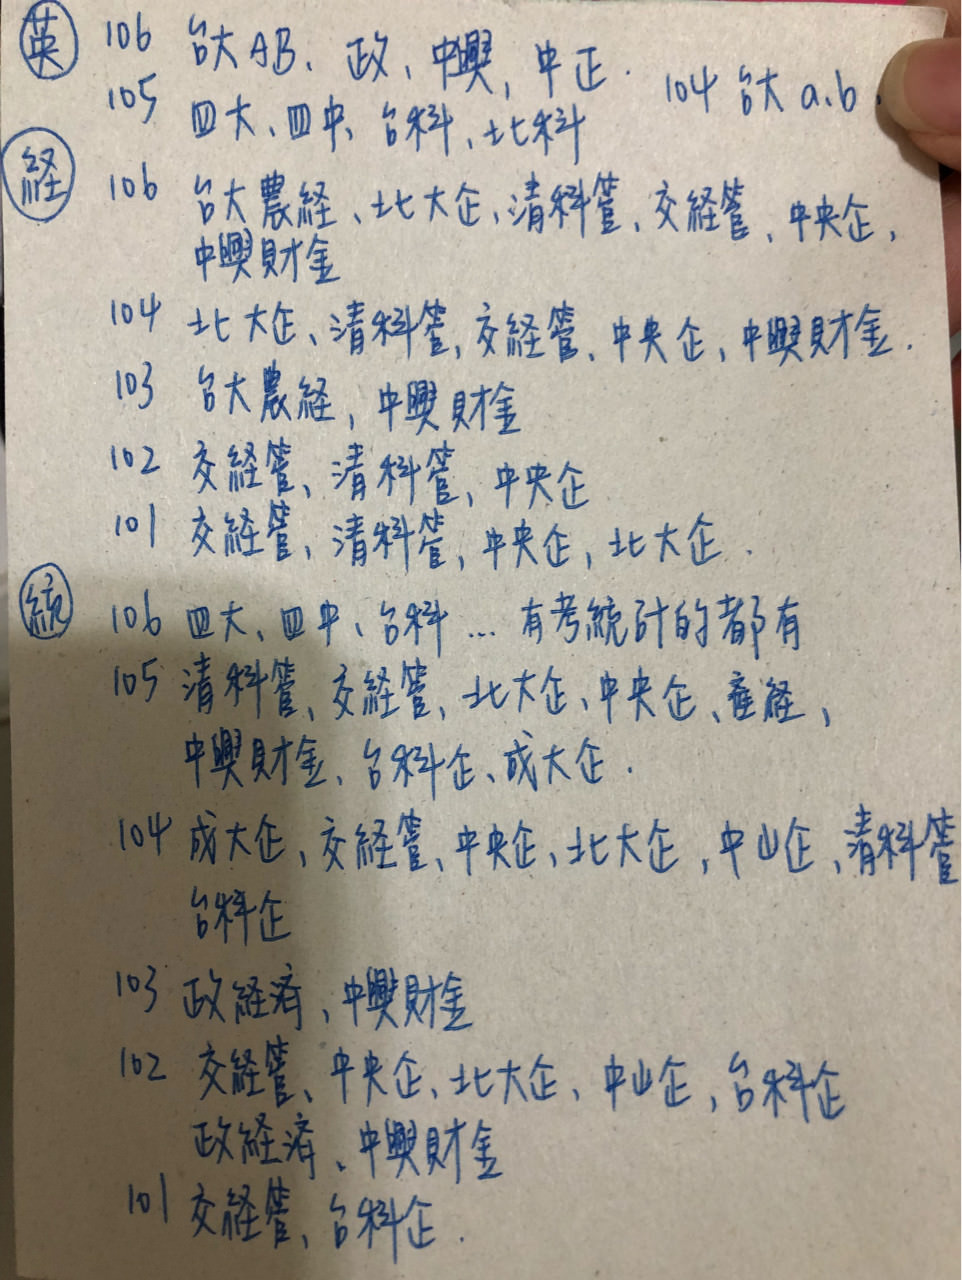 英 106 台大AB、政、中興、中正.
105 四大、四中、台科、北科 104 台大a.b.
経 106 台大農経、北大企、清科管、交経管、中央企,
中興財金
104 北大企、清科管、交経管、中央企、中興財金.
103 台大農経,中興財金
102 交経管、清科管、中央企
101 交経管、清科管,中央企,北大企.
統 106 四大、四中、台科…有考統計的都有
105 清科管、交経管、北大企、中央企、産経,
中興財金、台科企、成大企.
104 成大企,交経管、中央企,北大企,中山企,清科管
台科企
103 政経済、中興財金
102 交経管、中央企、北大企、中山企,台科企
政経済、中興財金
101 交経管、台科企.